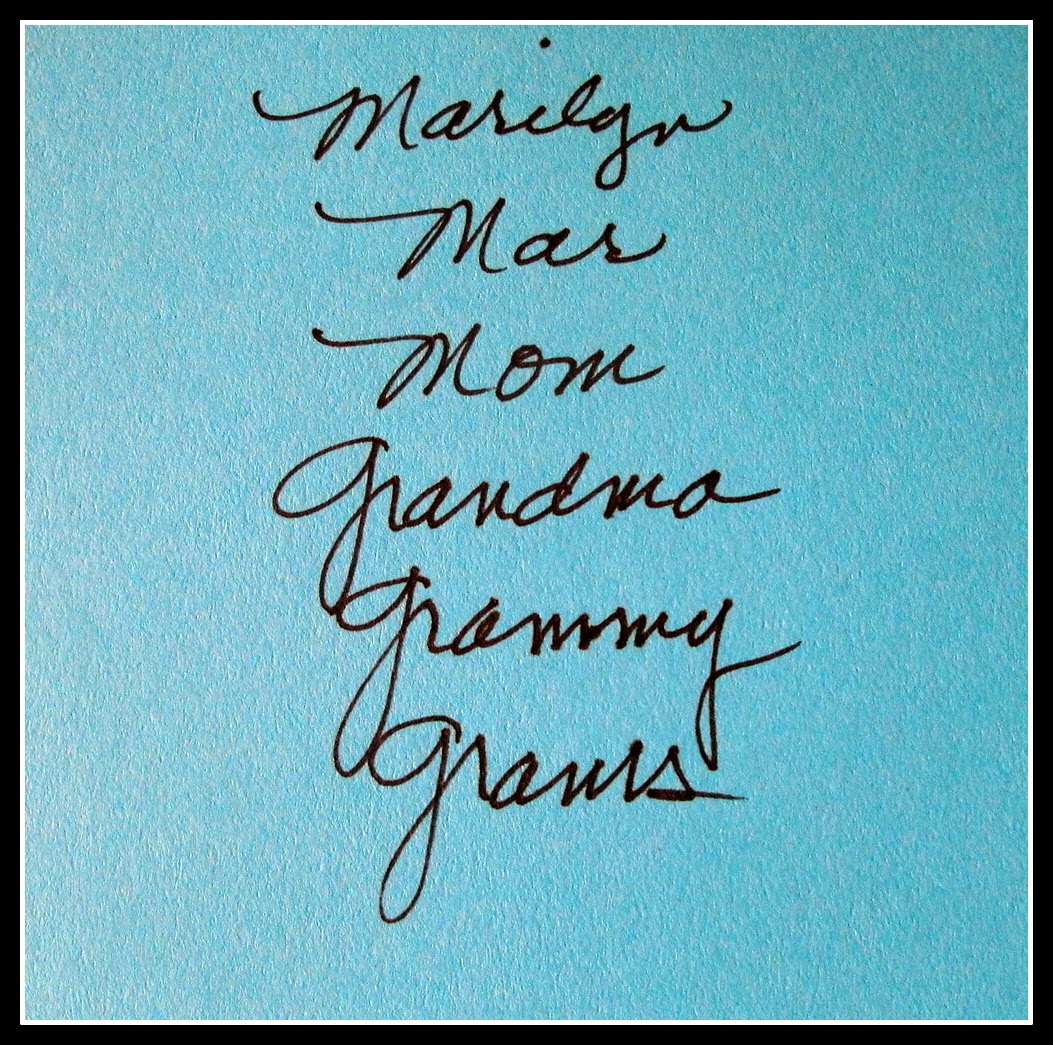 Marilyn
Mar
Mom
Grandma
Grammy
Grams